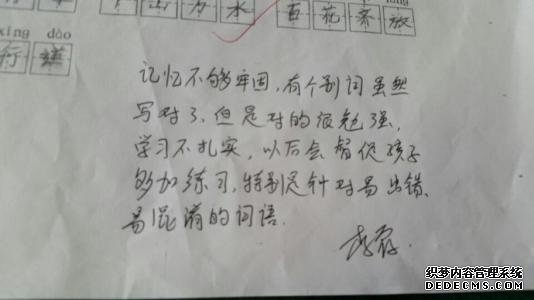 山 方 水 百 花 齐 放
xíng dào
行 道
记忆不够牢固，有个别词虽然
写对了，但是对的很勉强，
学习不扎实，以后会督促孩子
多加练习，特别是针对易出错、
易混淆的词语。
织梦内容管理系统
DEDECMS.COM